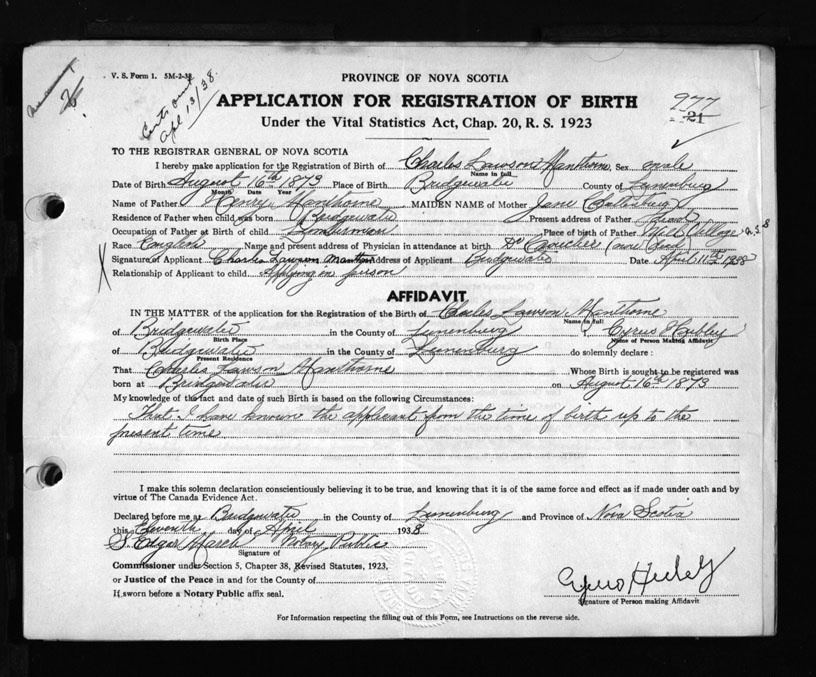 V. S. Form 1. 5M-2-38.
Apl 13/38.
PROVINCE OF NOVA SCOTIA
APPLICATION FOR REGISTRATION OF BIRTH
Under the Vital Statistics Act, Chap. 20, R. S. 1923
977
21
TO THE REGISTRAR GENERAL OF NOVA SCOTIA
I hereby make application for the Registration of Birth of Charles Lawson Manthorne Sex male
Name in full
Date of Birth August 16th 1873 Place of Birth Bridgewater County of Lunenburg
Month Date Year
Name of Father Henry Manthorne MAIDEN NAME of Mother Jane
Residence of Father when child was born Bridgewater Present address of Father Dead
Occupation of Father at Birth of child Lumberman Place of birth of Father Mill Village N.S.
Race English Name and present address of Physician in attendance at birth Dr (now dead)
Signature of Applicant Charles Lawson Manthorne Address of Applicant Bridgewater Date April 11th 1938
Relationship of Applicant to child Applying in person
AFFIDAVIT
IN THE MATTER of the application for the Registration of the Birth of Charles Lawson Manthorne
Name in full
of Bridgewater in the County of Lunenburg I, Cyrus Hubley
Birth Place Name of Person Making Affidavit
of Bridgewater in the County of Lunenburg do solemnly declare:
Present Residence
That Charles Lawson Manthorne Whose Birth is sought to be registered was
born at Bridgewater on August 16th 1873
My knowledge of the fact and date of such Birth is based on the following Circumstances:
That I have known the applicant from the time of birth up to the
present time
I make this solemn declaration conscientiously believing it to be true, and knowing that it is of the same force and effect as if made under oath and by
virtue of The Canada Evidence Act.
Declared before me at Bridgewater in the County of Lunenburg and Province of Nova Scotia
this Eleventh day of April 1938
S. Edgar March Notary Public
Signature of
Commissioner under Section 5, Chapter 38, Revised Statutes, 1923,
or Justice of the Peace in and for the County of
If sworn before a Notary Public affix seal.
Cyrus Hubley
Signature of Person making Affidavit
For Information respecting the filling out of this Form, see Instructions on the reverse side.